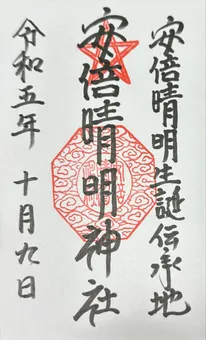 安倍晴明生誕伝承地
安倍晴明神社
令和五年 十月九日